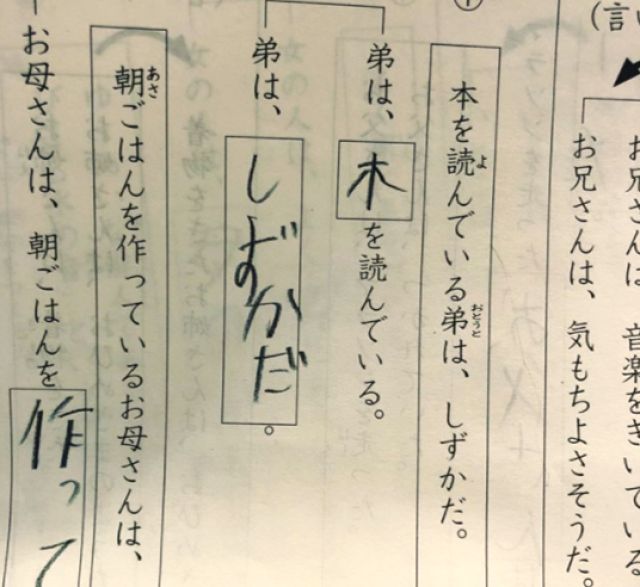 (言い
お兄さんは、音楽をきいている
お兄さんは、気もちよさそうだ。
本を読んでいる弟は、しずかだ。
よ
おとうと
弟は、木を読んでいる。
弟は、しずかだ。
朝ごはんを作っているお母さんは、
あさ
お母さんは、朝ごはんを作って